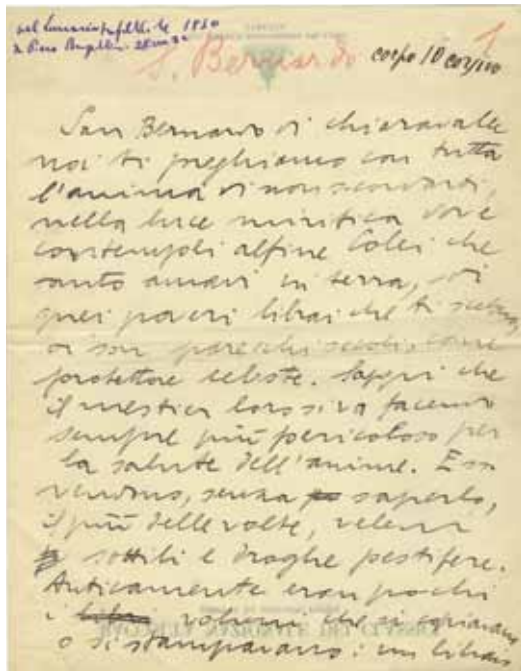 S. Bernardo corpo 10 corsivo
1
San Bernardo di Chiaravalle
noi ti preghiamo con tutta
l'anima di non scordarti,
nella luce mirifica dove
contempli alfine Colei che
tanto amavi in terra, di
quei poveri librai che ti scelsero,
or son parecchi secoli, come
protettore celeste. Sappi che
il mestier loro si va facendo
sempre più pericoloso per
la salute dell'anime. Essi
vendono, senza saperlo,
il più delle volte, veleni
sottili e droghe pestifere.
Anticamente eran pochi
i volumi che si copiavano
o si stampavano: un libraio